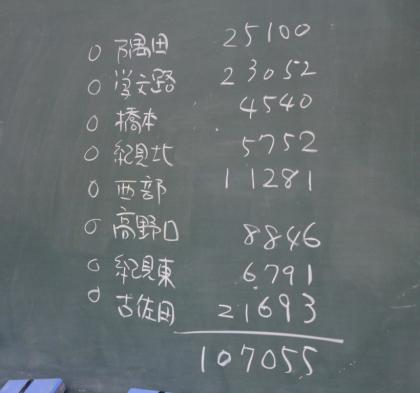 ○ 隅田 25100
○ 学文路 23052
○ 橋本 4540
○ 紀見北 5752
○ 西部 11281
○ 高野口 8846
○ 紀見東 6791
○ 古佐田 21693
107055